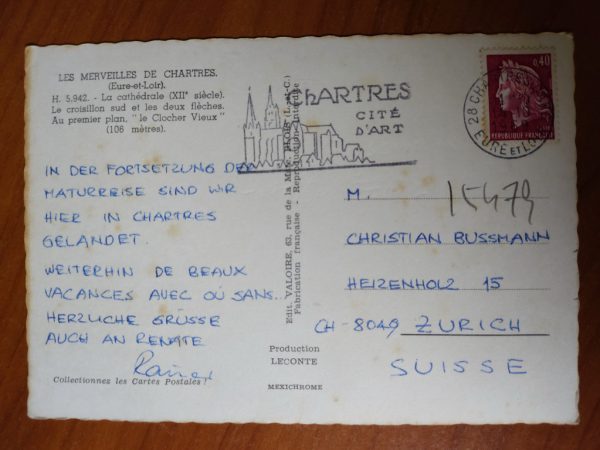 LES MERVEILLES DE CHARTRES.
(Eure-et-Loir).
H. 5.942. - La cathédrale (XIIe siècle).
Le croisillon sud et les deux flèches.
Au premier plan, "le Clocher Vieux"
(106 mètres).
IN DER FORTSETZUNG DER
MATURREISE SIND WIR
HIER IN CHARTRES
GELANDET.
WEITERHIN DE BEAUX
VACANCES AVEC OÙ SANS..
HERZLICHE GRÜSSE
AUCH AN RENATE
Rainer
Collectionnez les Cartes Postales !
Edit. VALOIRE, 63, rue de la Mare, BLOIS (L.-et-C.)
Fabrication française - Reproduction interdite
Production
LECONTE
MEXICHROME
CHARTRES
CITÉ
D'ART
28 CHARTRES
EURE ET LOIR
0,40
REPUBLIQUE FRANÇAISE
M.
15479
CHRISTIAN BUSSMANN
HEIZENHOLZ 15
CH-8049 ZURICH
SUISSE